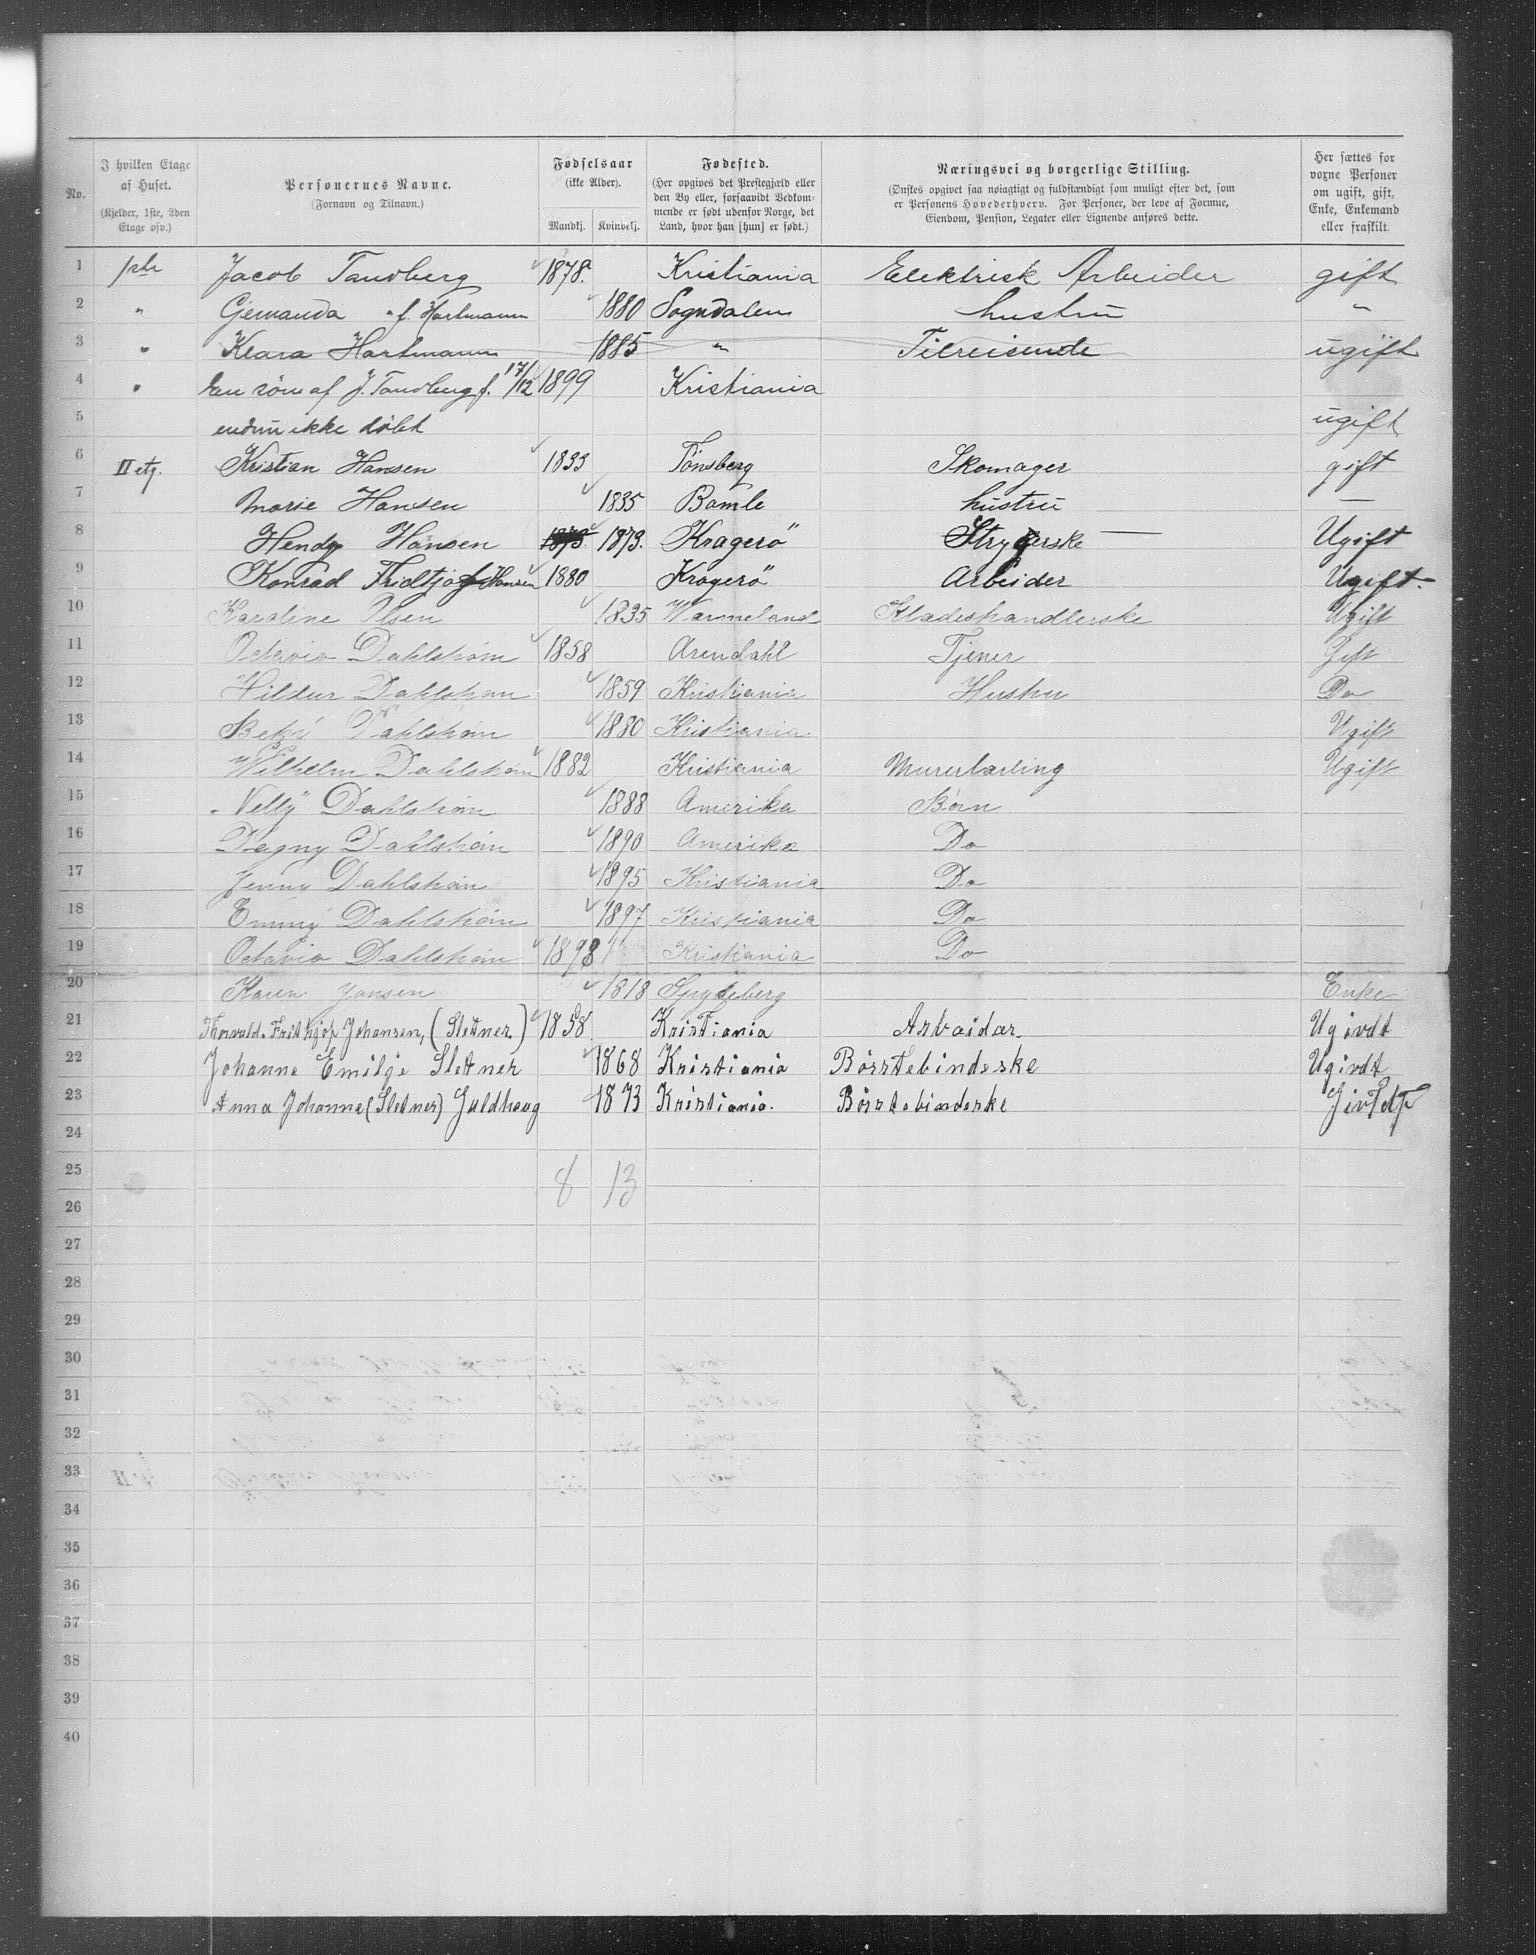 No.
I hvilken Etage af Huset. (Kjelder, 1ste, 2den Etage osv.)
Personernes Navne. (Fornavn og Tilnavn.)
Fødselsaar (ikke Alder). Mandkj. Kvindekj.
Fødested. (Her opgives det Prestegjæld eller den By eller, forsaavidt Vedkommende er født udenfor Norge, det Land, hvor han [hun] er født.)
Næringsvei og borgerlige Stilling. (Ønskes opgivet saa nøiagtigt og fuldstændigt som muligt efter det, som er Personens Hovederhverv. For Personer, der leve af Formue, Eiendom, Pension, Legater eller Lignende anføres dette.
Her sættes for voxne Personer om ugift, gift, Enke, Enkemand eller fraskilt.
1 ptr Jacob Tandberg 1878 Kristiania Elektrisk Arbeider gift
2 " Gemanda " f. Hartmann 1880 Sogndalen hustru "
3 " Klara Hartmann 1885 " Tilreisende ugift
4 " En søn af J. Tandberg f. 17/12 1899 Kristiania
5 endnu ikke døbt ugift
6 II etg. Kristian Hansen 1833 Tønsberg Skomager gift
7 Marie Hansen 1835 Bamle hustru —
8 Hendy Hansen 1873 1873. Kragerö Strygerske — Ugift
9 Konrad Fridtjof Hansen 1880 Kragerö Arbeider Ugift
10 Karoline Olsen 1835 Warmeland Kladeshandlerske Ugift
11 Octavio Dahlstrøm 1858 Arendahl Tjener Gift
12 Hildur Dahlstrøm 1859 Kristiania Hustru Do
13 Betzi Dahlstrøm 1880 Kristiania Ugift
14 Wilhelm Dahlstrøm 1882 Kristiania Murerlærling Ugift
15 Nelly Dahlstrøm 1888 Amerika Børn
16 Dagny Dahlstrøm 1890 Amerika Do
17 Jenny Dahlstrøm 1895 Kristiania Do
18 Emmy Dahlstrøm 1897 Kristiania Do
19 Octavio Dahlstrøm 1898 Kristiania Do
20 Karen Jansen 1818 Spydeberg Enke
21 Thorvald. Frithjof Johansen, (Slettner.) 1858 Kristiania Arbaidar. Ugivdt
22 Johanne Emilje Slettner 1868 Kristiania Börstebindeske Ugivdt
23 Anna Johanne (Slettner) Guldhaug 1873 Kristiania. Börstebindeske Jivtdt
24
25 8 13
26
27
28
29
30
31
32
33
34
35
36
37
38
39
40